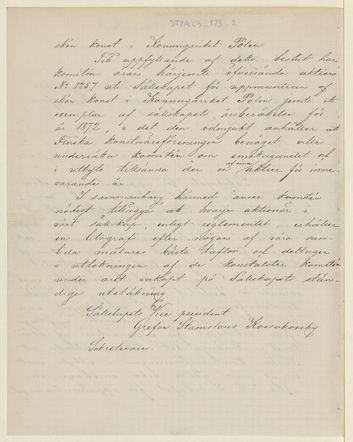 STYAC3_173_2
skön konst i Konungariket Polen
Till uppfyllande af detta beslut har
komitén äran härjemte öfversända aktien
No 1257 uti Sällskapet för uppmuntran af
skön konst i Konungariket Polen jemte ett
exemplar af sällskapets årsberättelse för
år 1872, i det den vänligt anhåller att
Finska konstnärsföreningen benäget ville
underrätta komitén om emottagandet och
i utbyte tillsända der en aktie för inne-
varande år.
I sammanhang härmed anser komitén
nödigt tillägga att hvarje aktionär i
vårt sällskap, enligt reglementet, erhåller
en litografi efter någon af våra sam-
tida målares bästa taflor och deltager
i utlottningen af de konstalster komitén
under året inköpt på Sällskapets stän-
diga utställning
Sällskapets Vice president
Grefve Stanislaus Kossakowsky
Sekreterare